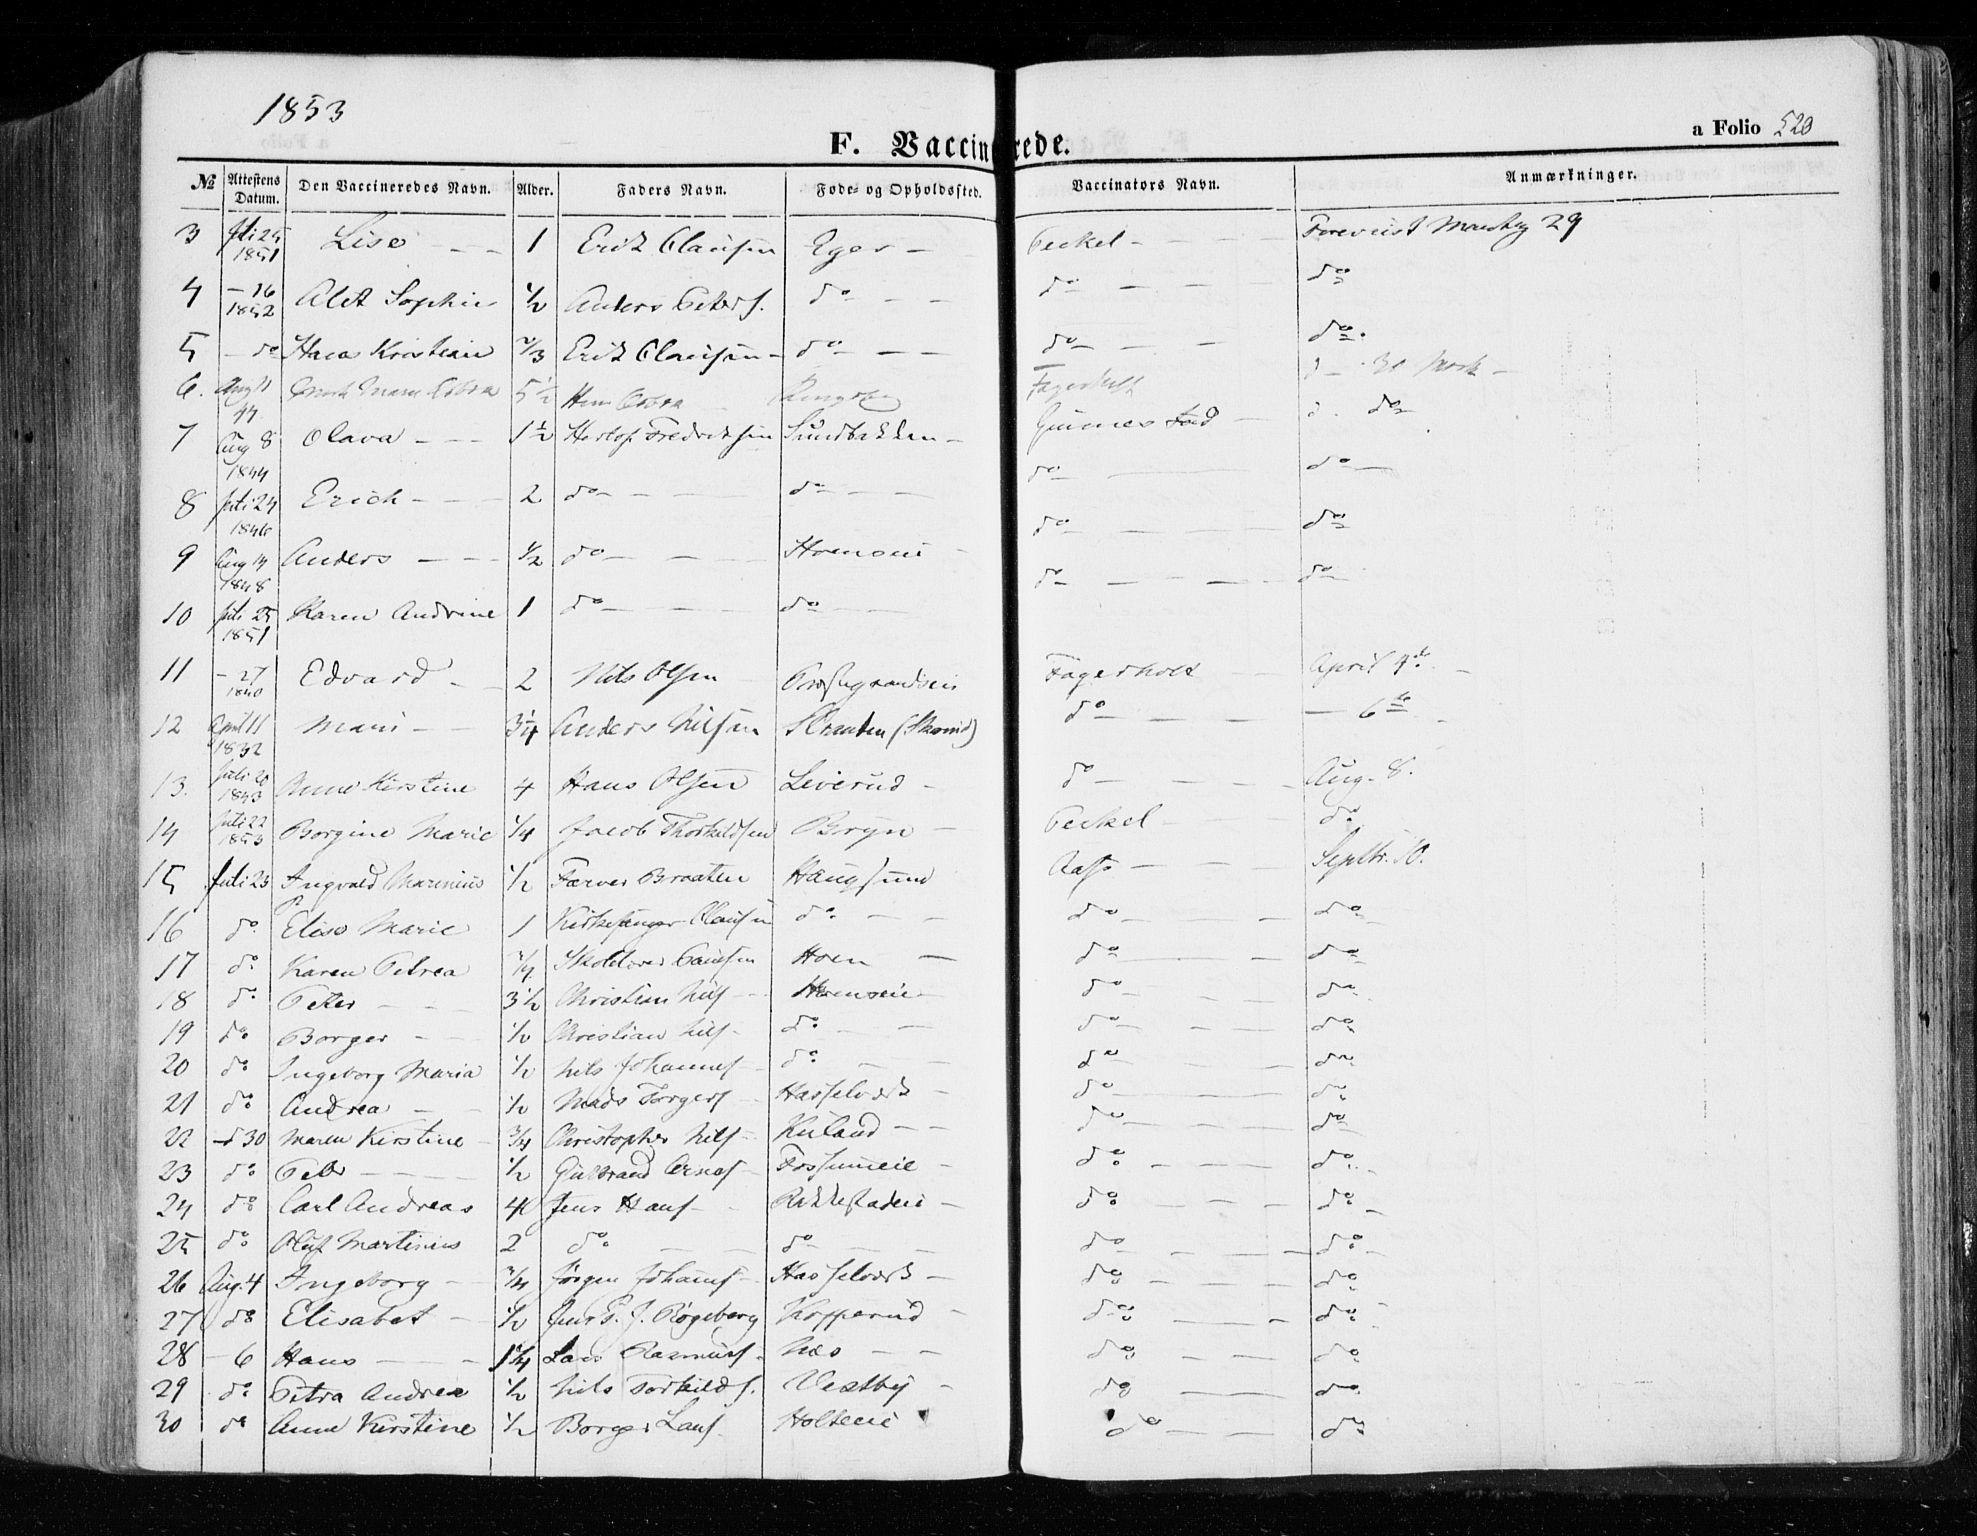 1853
a Folio 520
F. Vaccinerede.
№ Attestens Datum. Den Vaccineredes Navn. Alder. Faders Navn. Føde- og Opholdssted. Vaccinators Navn. Anmærkninger.
3 Juli 25 1851 Lise — — 1 Erik Clausen Eger — Peckel — Forevist 29
4 — 16 1852 Alet Sophie 1/2 Anders Peters. do — — do — — — do
5 — do Kristian 2/3 Erik Clausen — do — — do — — do
6. Aug 11 5 1/2 do
7 Aug 8 1844 Olava — — 1 1/2 Fredriksen Sundbakken — do
8 Juli 24 1846 Erich — — 2 do — — do — — do — do —
9 Aug 14 1848 Anders — — 1/2 do — — do — — do
10 Juli 25 1851 Karen Andrine 1 do — — do — — do — — do
11 — 27 1840 Edvard — — 2 Nils Olsen Fagerholt April 4de
12 April 11 1832 Mari — — 3 1/4 Anders Nilsen Braaten do — — — 6te
13. Juli 20 1853 Anne Kirstine 4 Hans Olsen Leverud — do — — Aug. 8.
14 Juli 22 1853 Borgine Marie 1/4 Jacob Thorkildsen Bryn — Peckel — do
15 Juli 23 Ingvald Marinius 1/2 Farver Braaten Haugsund Aass — — Septbr. 10.
16 do Elise Marie 1 Kirkesanger Clausen do — — do — — do
17 do Karen Petrea Hoen — do — — do
18 do Peter — — 3 1/2 Christian Nils — Hoenseie — do — — do
19 do Borger — — 1/2 Christian Nils — do — — do — — do
20 do Ingeborg Maria 1/2 Nils Johannes — do — — do — — do
21 do Andrea — — 1/2 Mads Torgers — Hasselværk — do — — do
22 — 30 Maren Kirstine — 3/4 Christopher Nils — do — — do
23 do Peter — — 1/2 Gulbrand Arnes — Fossumeie — do — — do
24 do Carl Andreas 4 Jens Hans — do — — do
25 do Oluf Martinius 2 do — — do — — do — — do
26 Aug. 4 Ingeborg — 3/4 Jørgen Johannes — Hasselværk — do — — do
27 do Elisabet — 1/2 J. Røgeberg Kopperud — do — — do
28 — 6 Hans — — 1 1/4 Lars Rasmus — Næs — — do — — do
29 do Petra Andrea 1/2 Nils Torkilds. Vestby — do — — do
30 do Anne Kirstine 1/2 Borger Lars. Holteeie do — — do